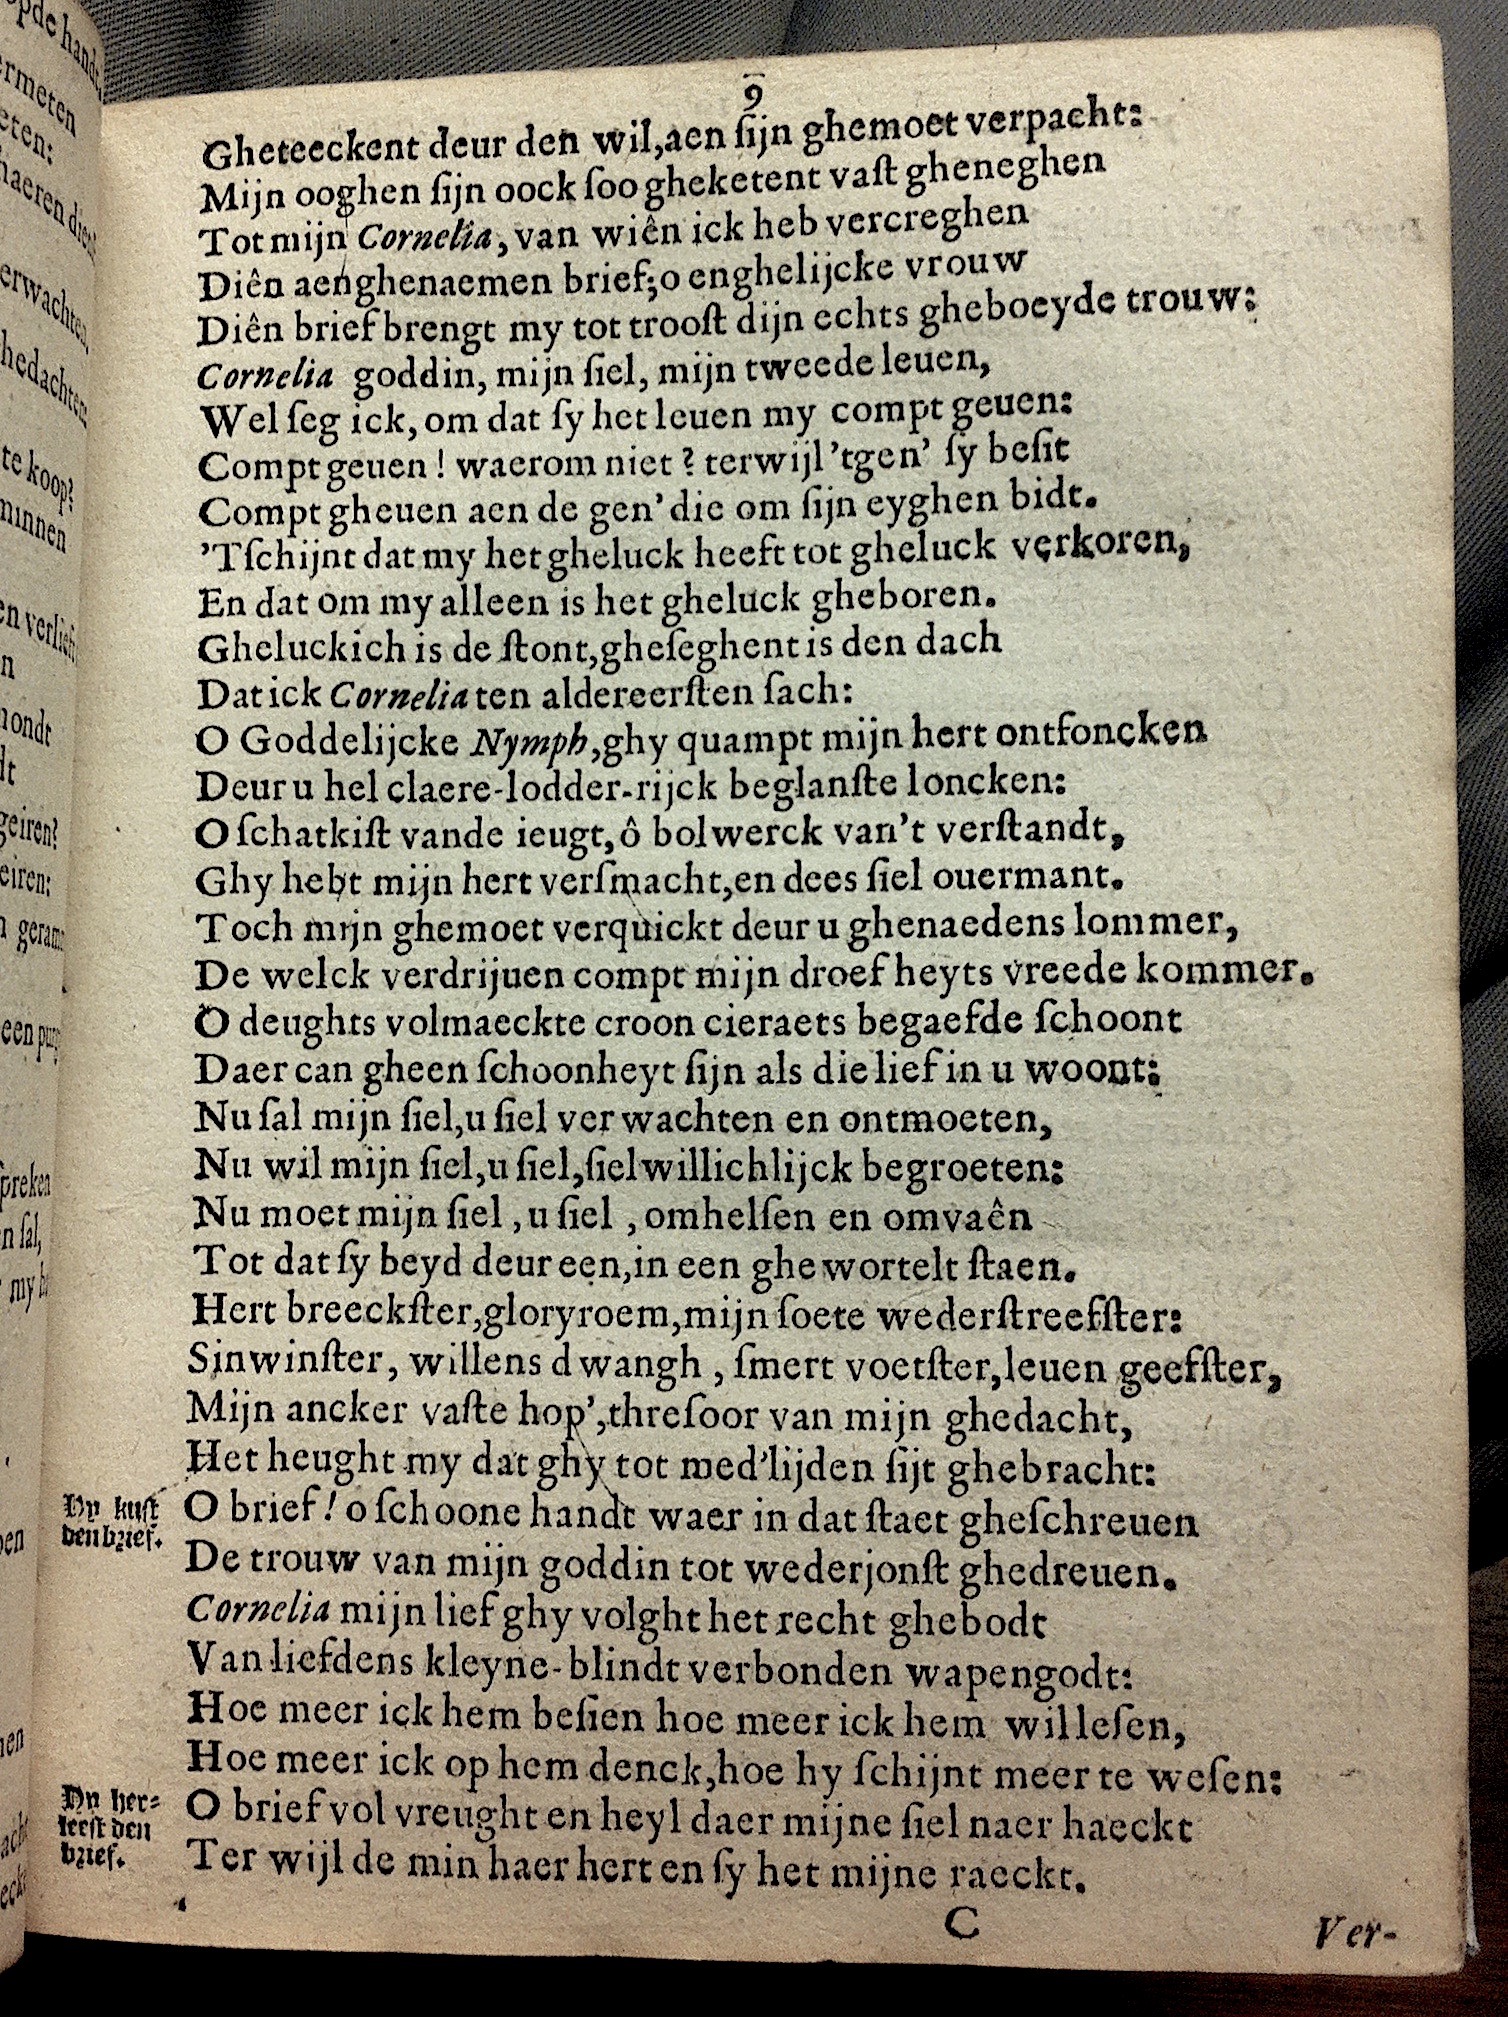 9
Gheteeckent deur den wil,aen ſijn ghemoet verpacht:
Mijn ooghen ſijn oock ſoo gheketent vaſt gheneghen
Tot mijn Cornelia, van wiên ick heb vercreghen
Diên aenghenaemen brief;o enghelijcke vrouw
Diên brief brengt my tot trooſt dijn echts gheboeyde trouw:
Cornelia goddin, mijn ſiel, mijn tweede leuen,
Wel ſeg ick, om dat ſy het leuen my compt geuen:
Compt geuen ! waerom niet ? terwijl 'tgen' ſy beſit
Compt gheuen aen de gen' die om ſijn eyghen bidt.
'Tſchijnt dat my het gheluck heeft tot gheluck verkoren,
En dat om my alleen is het gheluck gheboren.
Gheluckich is de ſtont,gheſeghent is den dach
Dat ick Cornelia ten aldereerſten ſach:
O Goddelijcke Nymph,ghy quampt mijn hert ontfoncken
Deur u hel claere-lodder-rijck beglanſte loncken:
O ſchatkiſt vande ieugt,ô bolwerck van't verſtandt,
Ghy hebt mijn hert verſmacht,en dees ſiel ouermant.
Toch mijn ghemoet verquickt deur u ghenaedens lommer,
De welck verdrijuen compt mijn droefheyts vreede kommer.
O deughts volmaeckte croon cieraets begaefde ſchoont
Daer can gheen ſchoonheyt ſijn als die lief in u woont:
Nu ſal mijn ſiel,u ſiel verwachten en ontmoeten,
Nu wil mijn ſiel,u ſiel,ſielwillichlijck begroeten:
Nu moet mijn ſiel , u ſiel , omhelſen en omvaên
Tot dat ſy beyd deur een,in een ghewortelt ſtaen.
Hert breeckſter,gloryroem,mijn ſoete wederſtreefſter:
Sinwinſter, willens dwangh , ſmert voetſter,leuen geefſter,
Mijn ancker vaſte hop',threſoor van mijn ghedacht,
Het heught my dat ghy tot med'lijden ſijt ghebracht:
Hy kuſt
den brief.
O brief ! o ſchoone handt waer in dat ſtaet gheſchreuen
De trouw van mijn goddin tot wederjonſt ghedreuen.
Cornelia mijn lief ghy volght het recht ghebodt
Van liefdens kleyne-blindt verbonden wapengodt:
Hoe meer ick hem beſien hoe meer ick hem wil leſen,
Hoe meer ick op hem denck,hoe hy ſchijnt meer te weſen:
Hy her-
leeſt den
brief.
O brief vol vreught en heyl daer mijne ſiel naer haeckt
Ter wijl de min haer hert en ſy het mijne raeckt.
C
Ver-